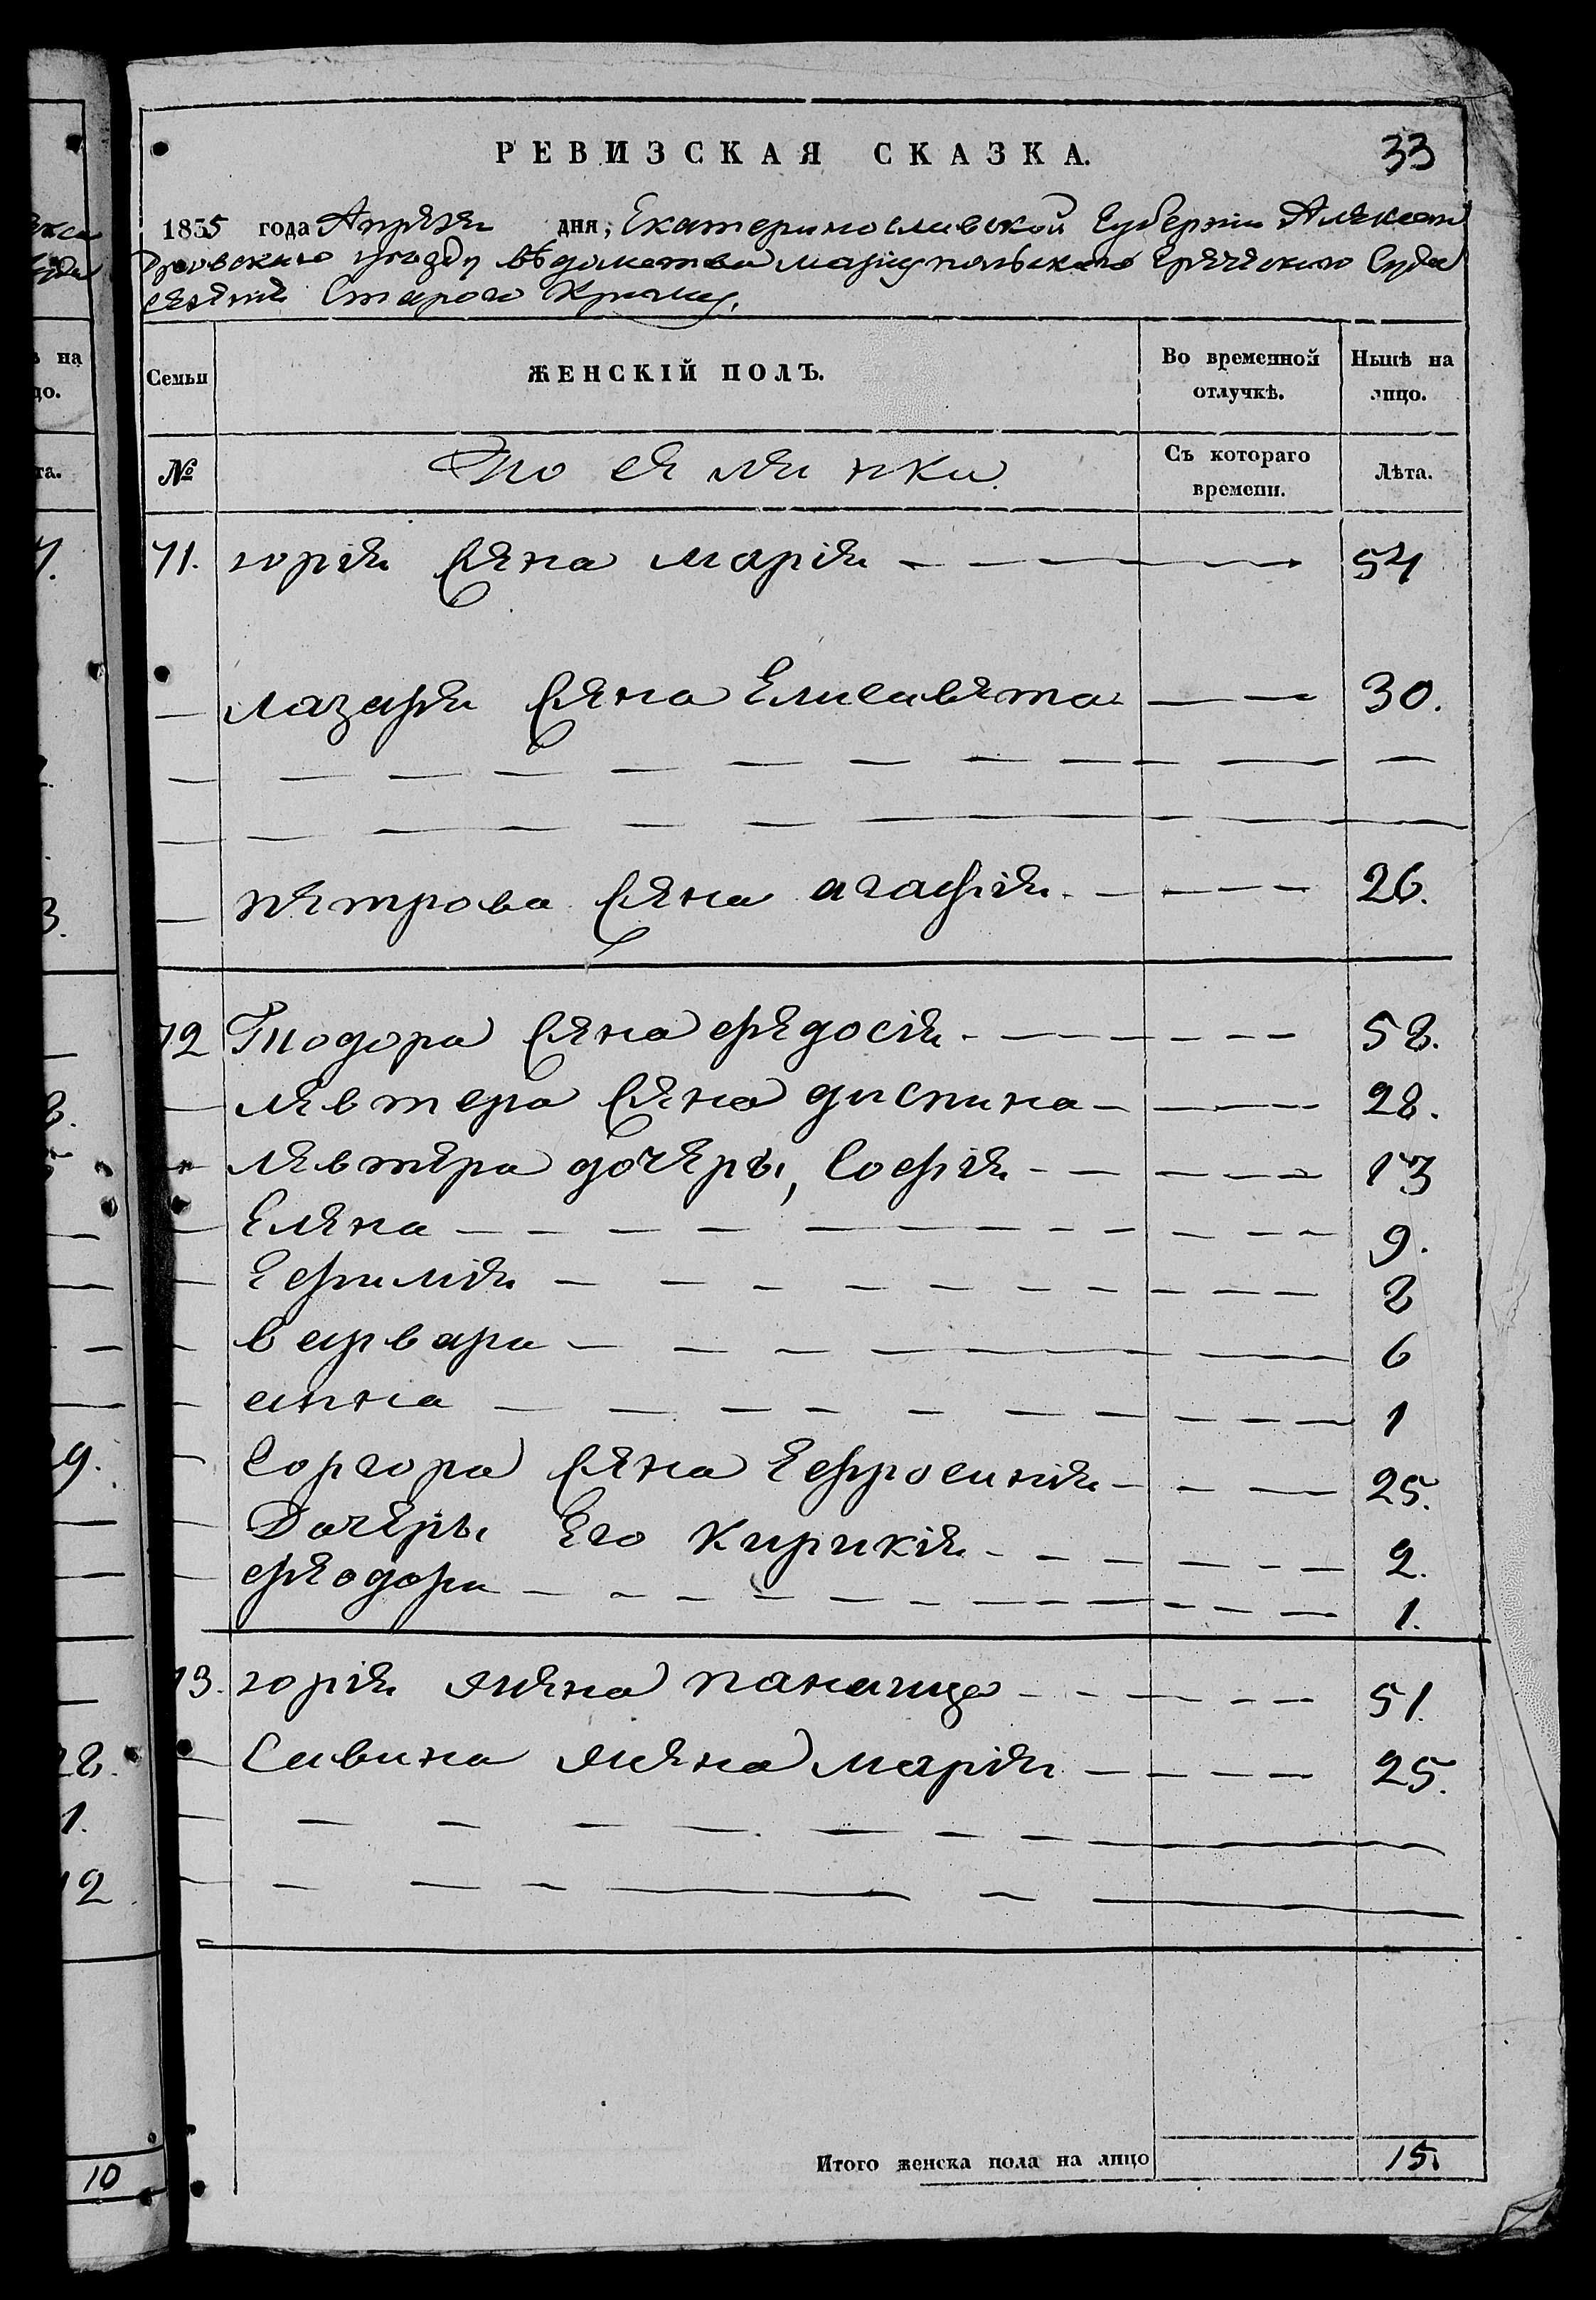 РЕВИЗСКАЯ СКАЗКА. 33
1835 года Апреля дня, Екатеринославской Губернии Алексан
дровскаго уезду вѣдомства мариупольскаго Греческаго Суда
селения Стараго Крыму.
Семьи ЖЕНСКІЙ ПОЛЪ. Во временной отлучкѣ. Нынѣ на лицо.
№ Поселянки Съ котораго времени. Лѣта.
71. юрія жена марія 54
лазаря жена Елисавета 30.
петрова жена агафія 26.
72 Тиодора жена федосія 58.
левтера жена диспина 28.
левтера дочеры, Софія 13
Елена 9.
Ефимія 8
варвара 6
анна 1
жена Ефросинія 25.
Дочеры Его Кирикія 2.
феодора 1.
73. юрія жена 51.
Савина жена марія 25.
Итого женска пола на лицо 15.
9.
28.
1.
12
10